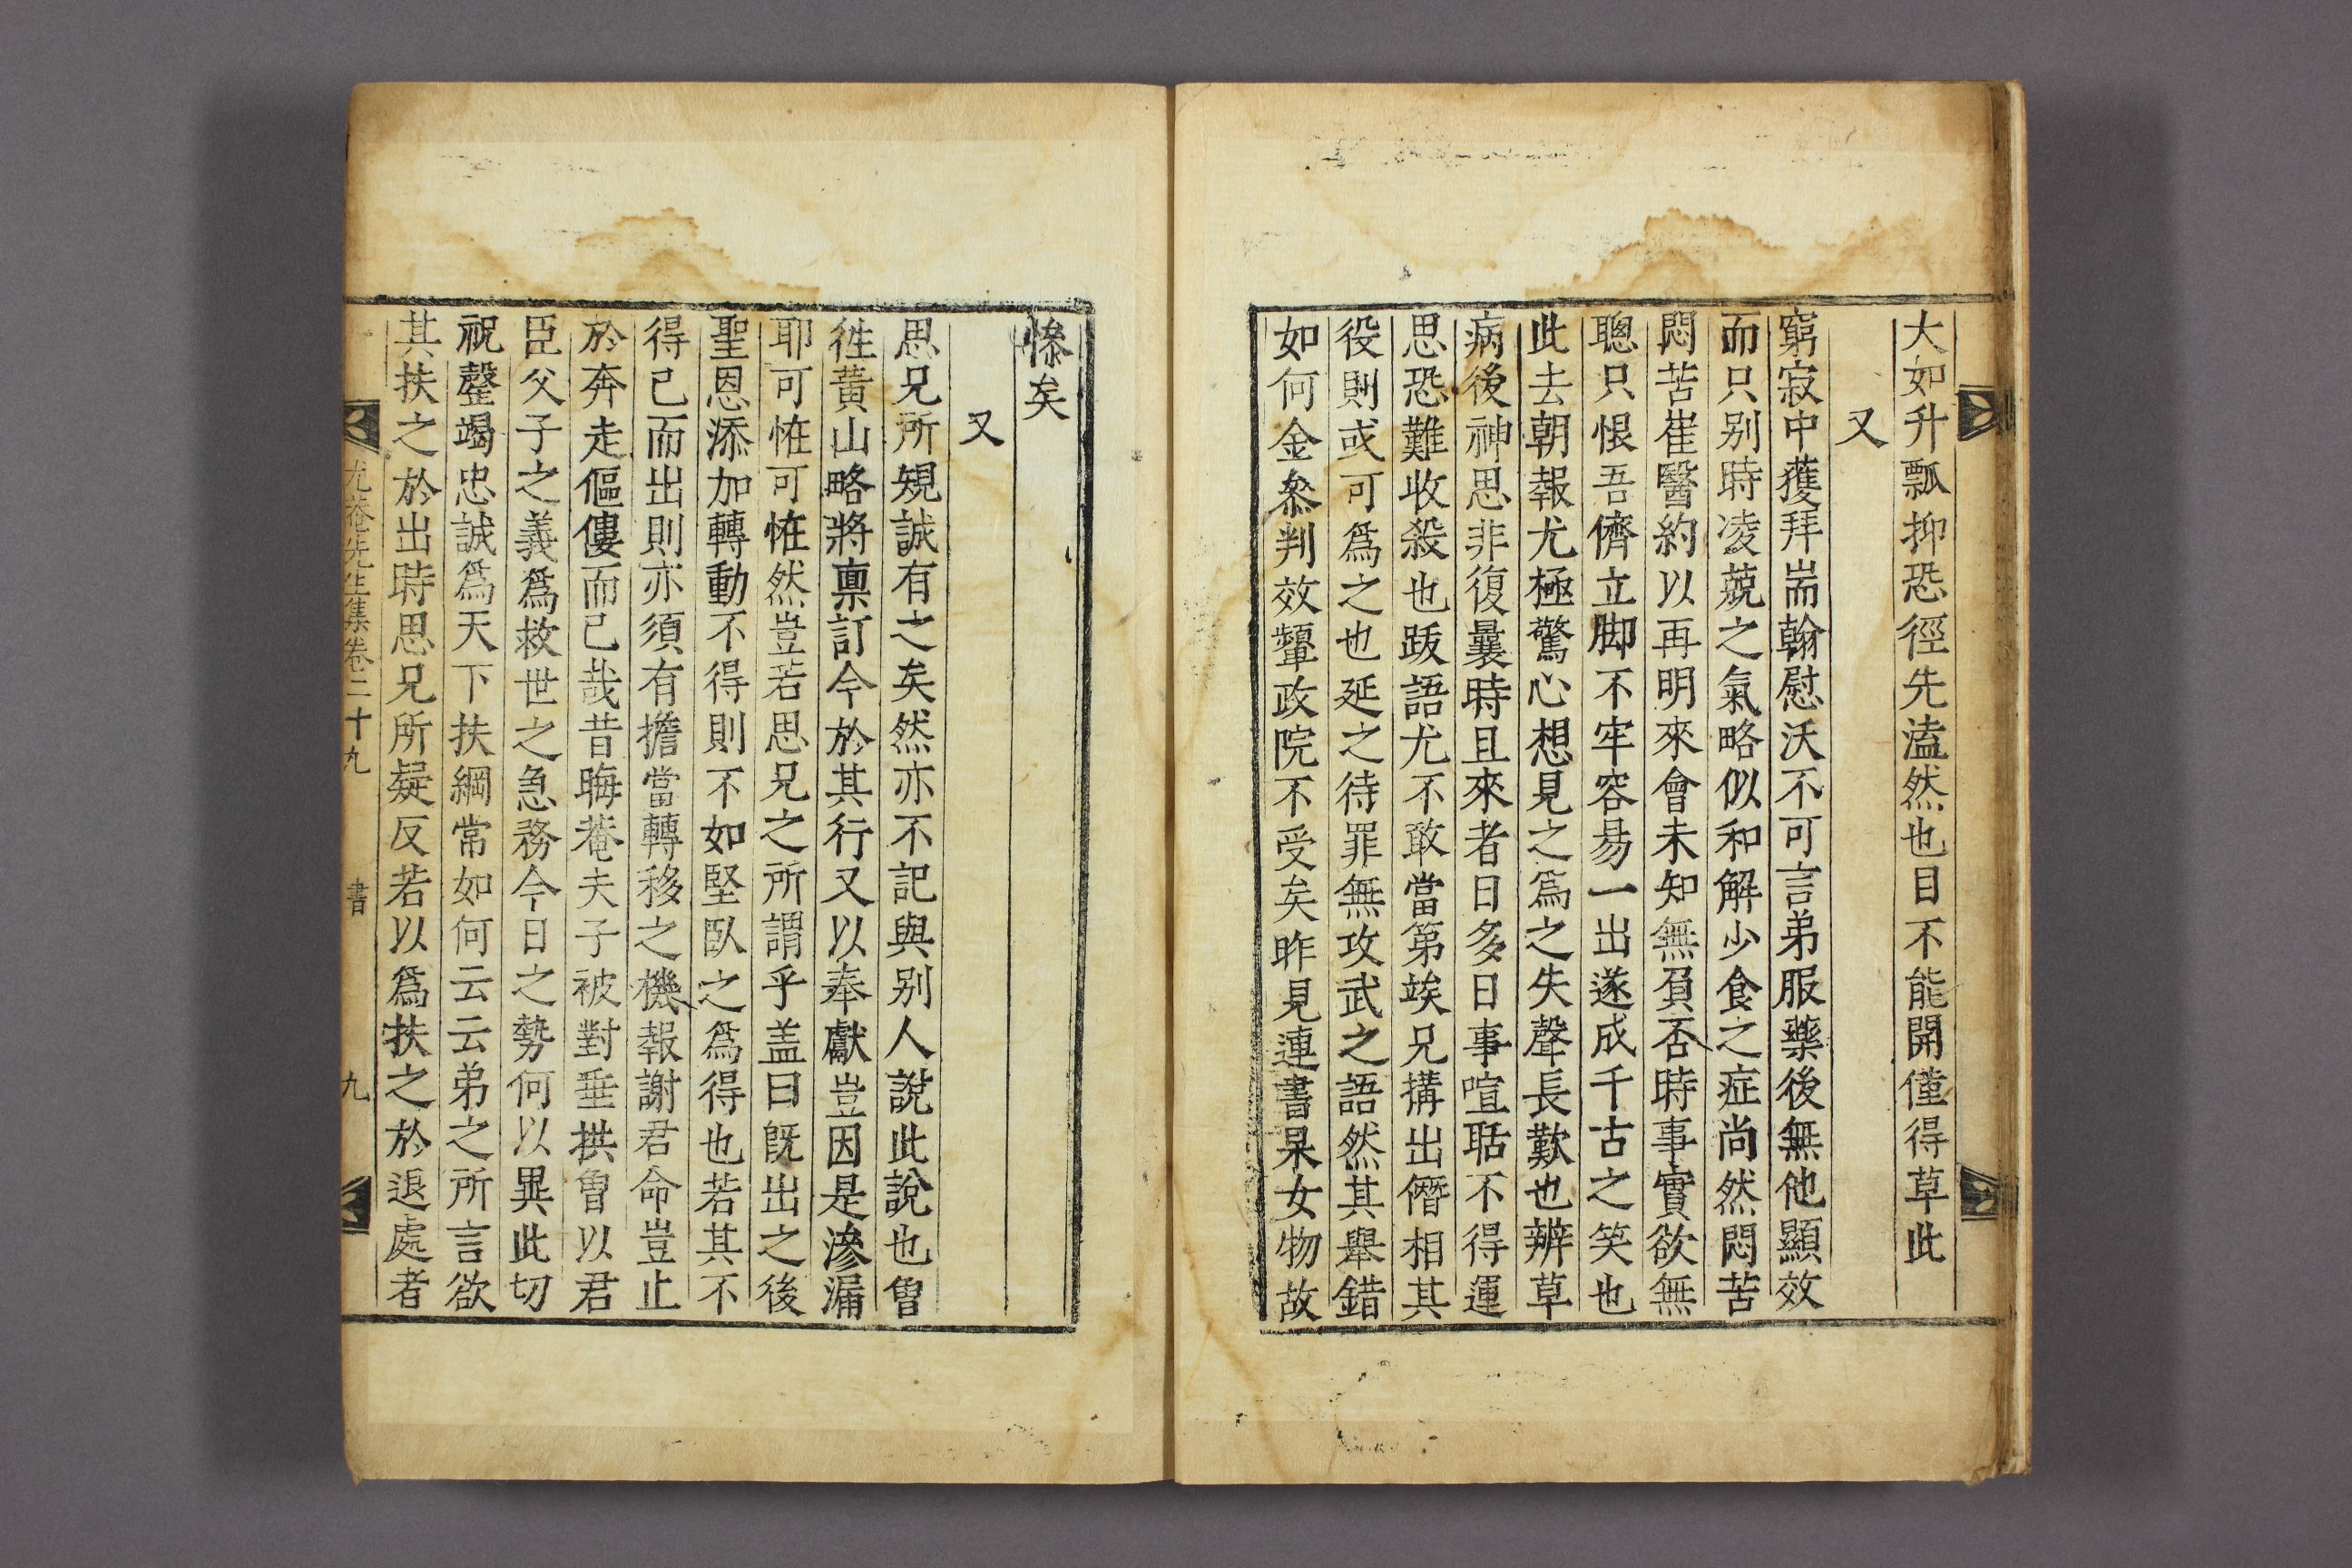 大如升瓢抑恐徑先溘然也目不能開僅得草此
又
窮寂中獲拜耑翰慰沃不可言弟服藥後無他顯效
而只别時凌兢之氣略似和解少食之症尚然悶苦
悶苦崔醫約以再明來會未知無負否時事實欲無
聰只恨吾儕立脚不牢容易一出遂成千古之笑也
此去朝報尤極驚心想見之爲之失聲長歎也辨草
病後神思非復曩時且來者日多日事喧聒不得運
思恐難收殺也跋語尤不敢當第竢兄搆出僭相其
役則或可爲之也延之待罪無攻武之語然其舉錯
如何金叅判效顰政院不受矣昨見連書杲女物故
慘矣
又
思兄所規誠有之矣然亦不記與别人說此說也曾
徃黃山略將禀訂今於其行又以奉獻豈因是滲漏
耶可恠可恠然豈若思兄之所謂乎盖曰旣出之後
聖恩添加轉動不得則不如堅臥之爲得也若其不
得已而出則亦須有擔當轉移之機報謝君命豈止
於奔走傴僂而已哉昔晦菴夫子被對垂拱曾以君
臣父子之義爲救世之急務今日之勢何以異此切
祝罄竭忠誠爲天下扶綱常如何云云弟之所言欲
其扶之於出時思兄所疑反若以爲扶之於退處者
尤菴先生集卷二十九 書 九